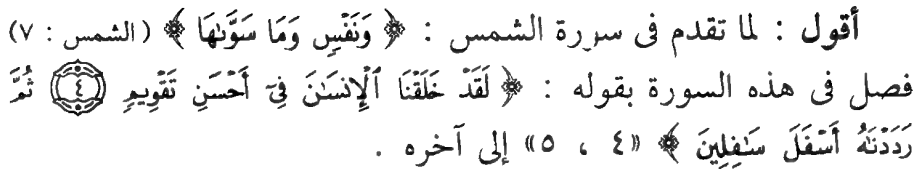 أقول : لما تقدم فى سورة الشمس : ﴿ وَنَفْسٍ وَمَا سَوَّىٰهَا ﴾ ( الشمس : ٧ )
فصل فى هذه السورة بقوله : ﴿ لَقَدْ خَلَقْنَا ٱلْإِنسَٰنَ فِىٓ أَحْسَنِ تَقْوِيمٍ ۝٤ ثُمَّ
رَدَدْنَٰهُ أَسْفَلَ سَٰفِلِينَ ﴾ «٤ ، ٥» إلى آخره .